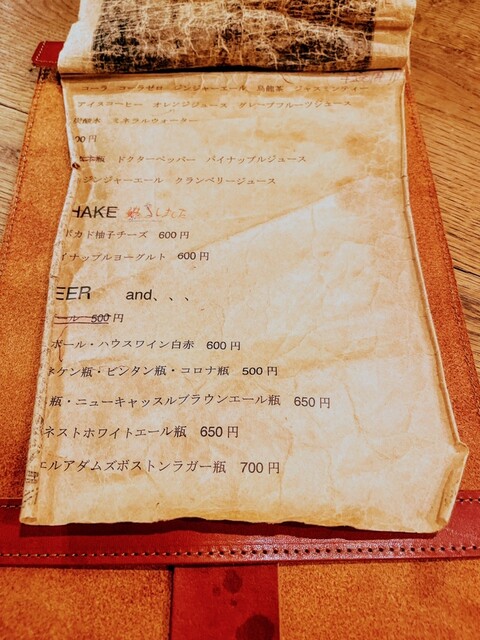 コーラ コーラゼロ ジンジャーエール 烏龍茶 ジャスミンティー
アイスコーヒー オレンジジュース グレープフルーツジュース
炭酸水 ミネラルウォーター
00円
ドクターペッパー パイナップルジュース
ジンジャーエール クランベリージュース
HAKE
ボカド柚子チーズ 600円
イナップルヨーグルト 600円
EER and、、、
ール 500円
ボール・ハウスワイン白赤 600円
ネケン瓶・ビンタン瓶・コロナ瓶 500円
瓶・ニューキャッスルブラウンエール瓶 650円
ネストホワイトエール瓶 650円
エルアダムズボストンラガー瓶 700円